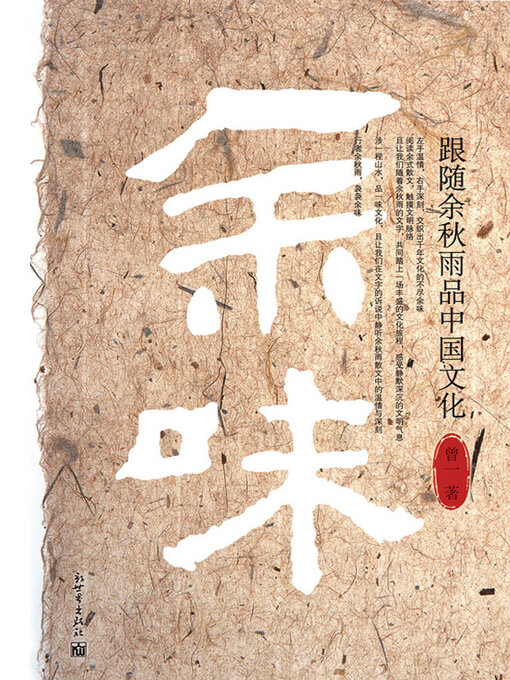 余味
跟随余秋雨品中国文化
曾一 著
左手温情，右手深刻，交织出千年文化的不尽余味
阅读余式散文，触摸文明脉络
且让我们随着余秋雨的文字，共同踏上一场丰盛的文化旅程，感受静默深沉的文明气息
涉一程山水，品一味文化，且让我们在文字的诉说中静听余秋雨散文中的温情与深刻
行者余秋雨，袅袅余味
新世界出版社